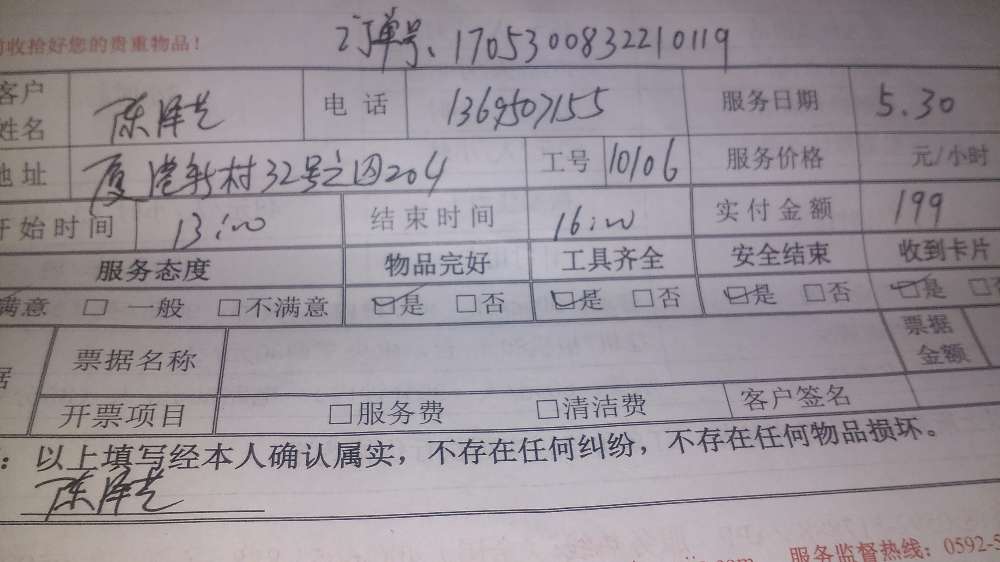 收拾好您的贵重物品!
订单号、1705300832210119
客户姓名 陈泽芝 电话 1369507155 服务日期 5.30
地址 厦港新村32号之四204 工号 10106 服务价格 元/小时
开始时间 13:00 结束时间 16:00 实付金额 199
服务态度 物品完好 工具齐全 安全结束 收到卡片
满意 □ 一般 □不满意 ☑是 □否 ☑是 □否 ☑是 □否 ☑是
票据名称 票据金额
开票项目 □服务费 □清洁费 客户签名
:以上填写经本人确认属实,不存在任何纠纷,不存在任何物品损坏。
陈泽芝
服务监督热线:0592-5